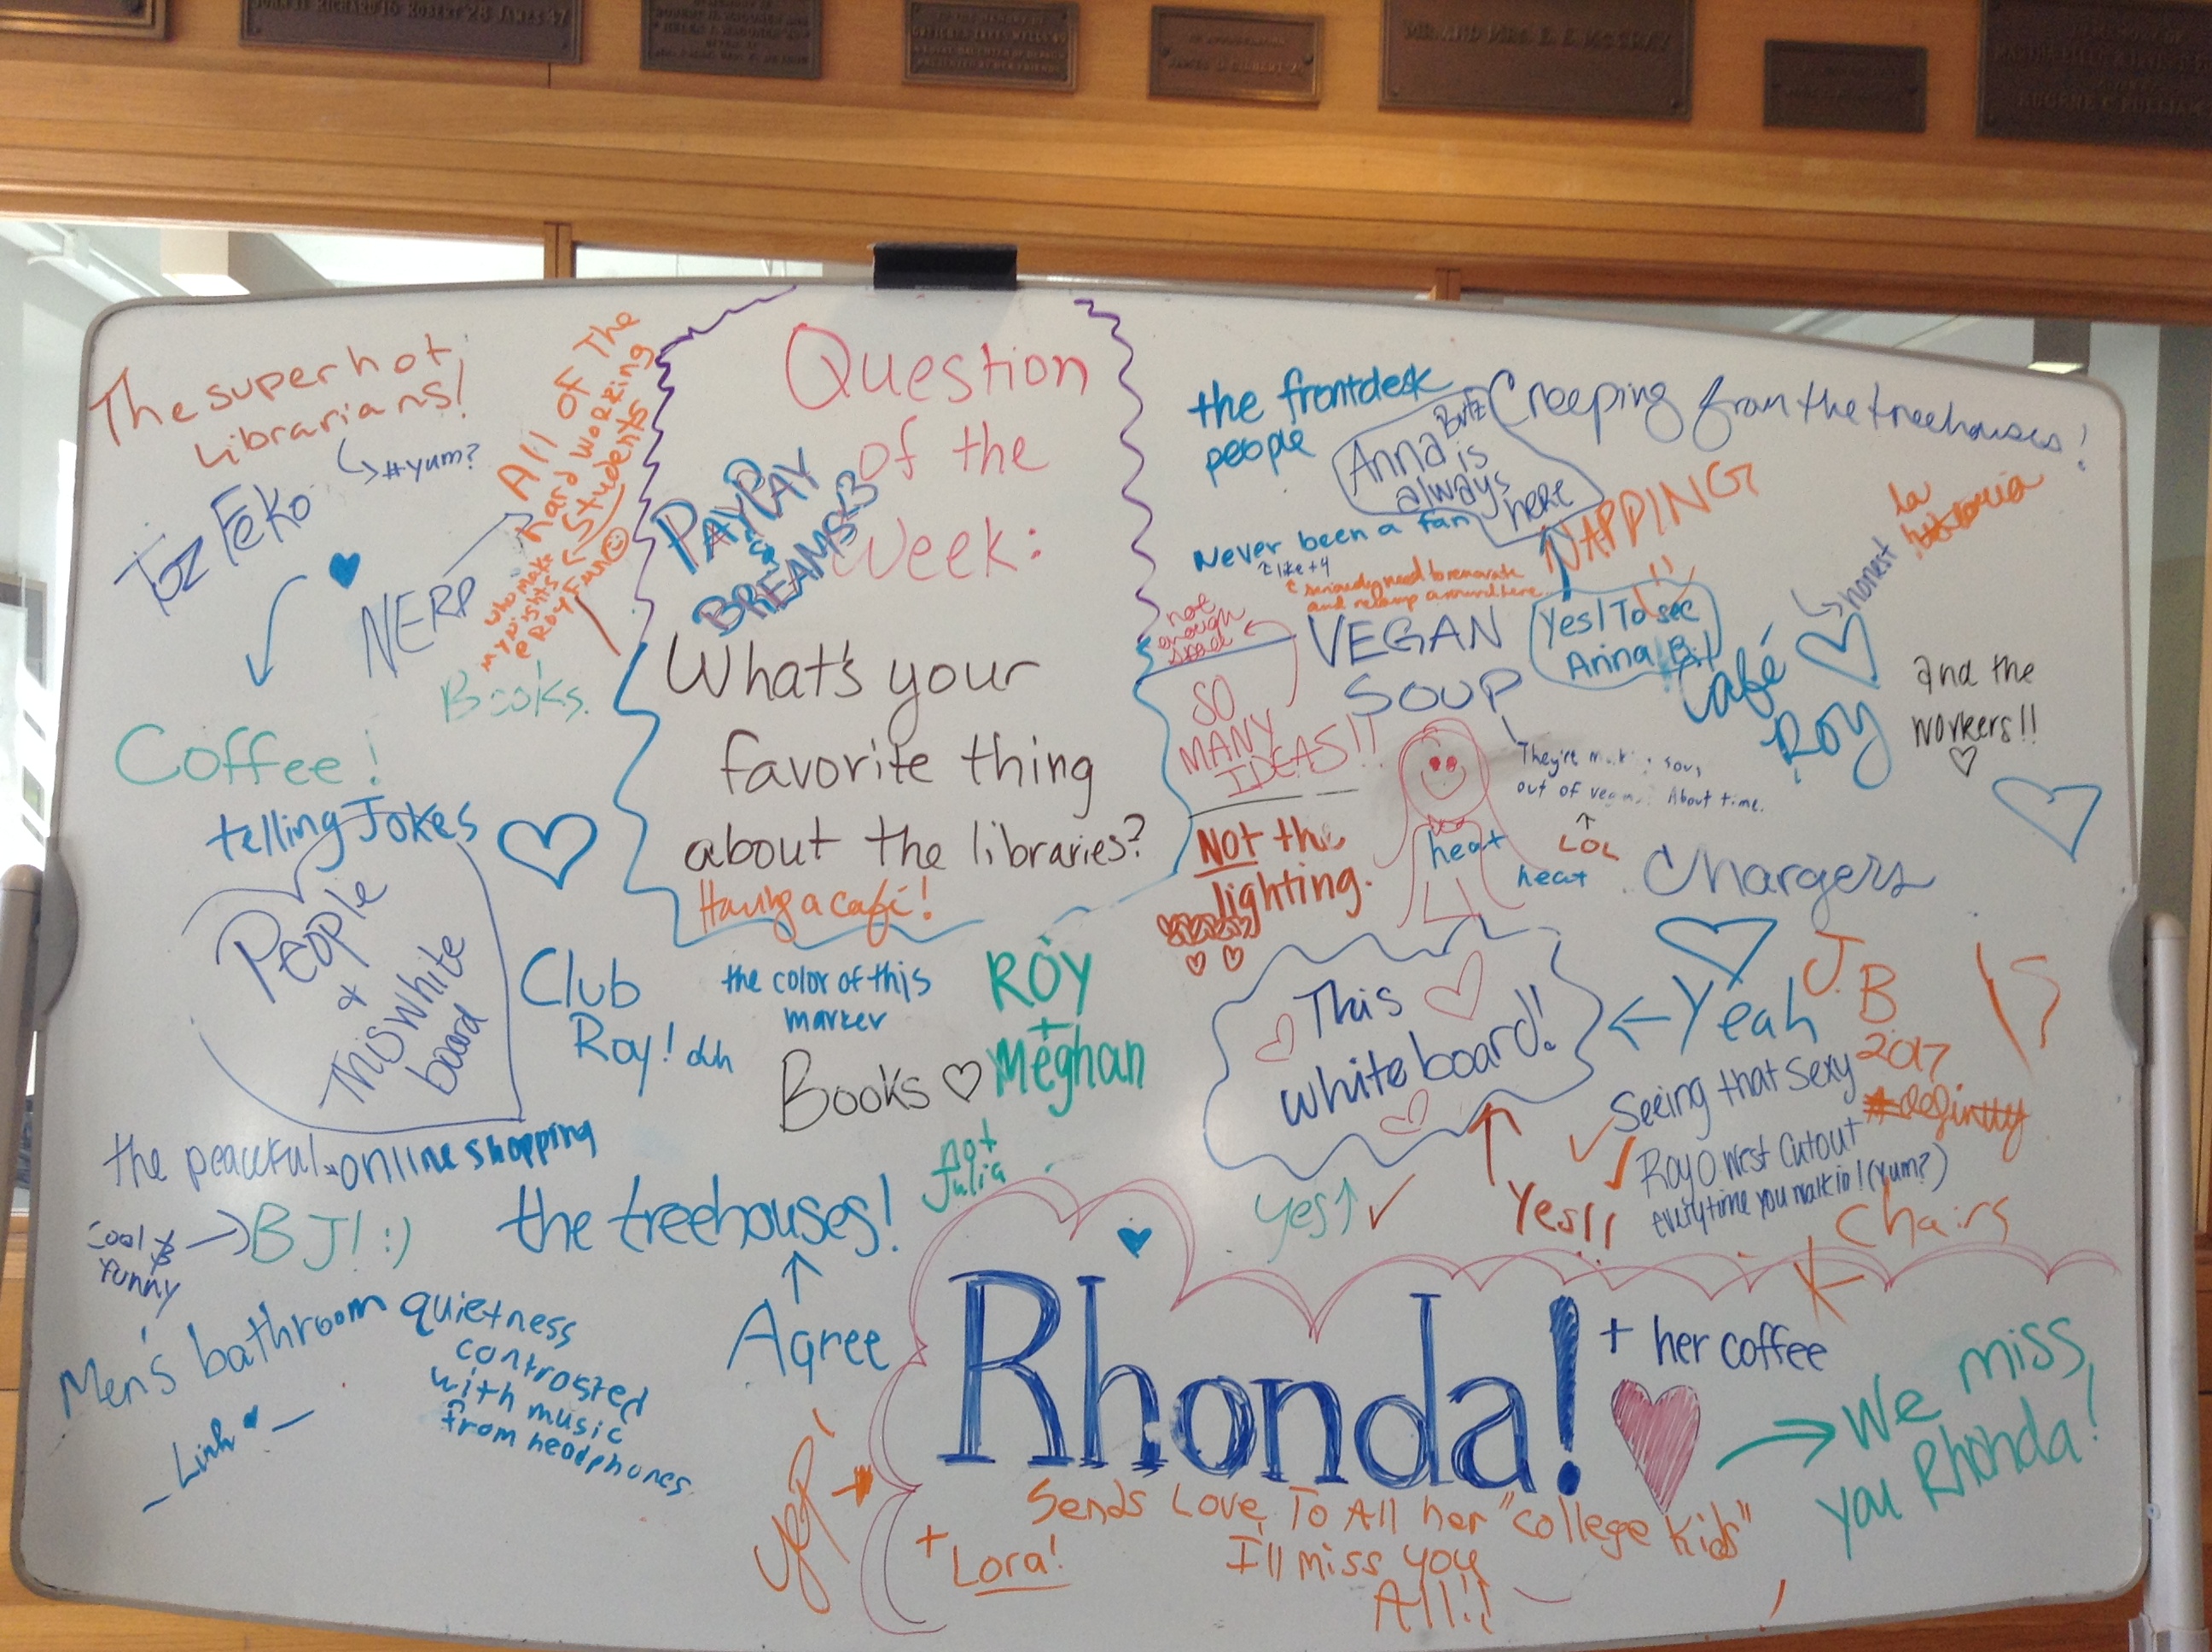 JOHN H RICHARD 16 ROBERT 28 JAMES 37
MR. AND MRS. E. E. McCRAY
EUGENE C. PULLIAM
Question
of the
Week:
What's your
favorite thing
about the libraries?
Having a café!
PAYPAY
is
BREAMS <3
The super hot
librarians!
#yum?
Joz Feko
NERD
All of The
hard working
Students
who make
my nights
@ Roy FUN
Books.
Coffee!
telling Jokes
People
+
This white
board
Club
Roy! duh
the color of this
marker
Books
ROY
+
Meghan
not
Julia
the peaceful
online shopping
cool &
Funny
BJ! :)
the treehouses!
Agree
Men's bathroom
Linh
quietness
contrasted
with music
from headphones
the frontdesk
people
Anna Butz
is
always
here
Creeping from the treehouses!
NAPPING
Never been a fan
like +4
seriously need to renovate
and revamp around here
not
enough
space
VEGAN
SOUP
Yes! To see
Anna B!
la
honest
café
ROY
and the
workers!!
SO
MANY
IDEAS!!
They're
out of
About time.
LOL
NOT the
lighting.
heat
heat
Chargers
This
whiteboard!!
Yeah
J.B
2017
Seeing that sexy
Roy O West Cutout
everytime you walk in! (yum?)
yes
Yes!!
Chairs
K
Rhonda!
+ her coffee
We miss
you Rhonda!
Sends Love To All her "college kids"
I'll miss you
All!!
yep!
+
Lora!